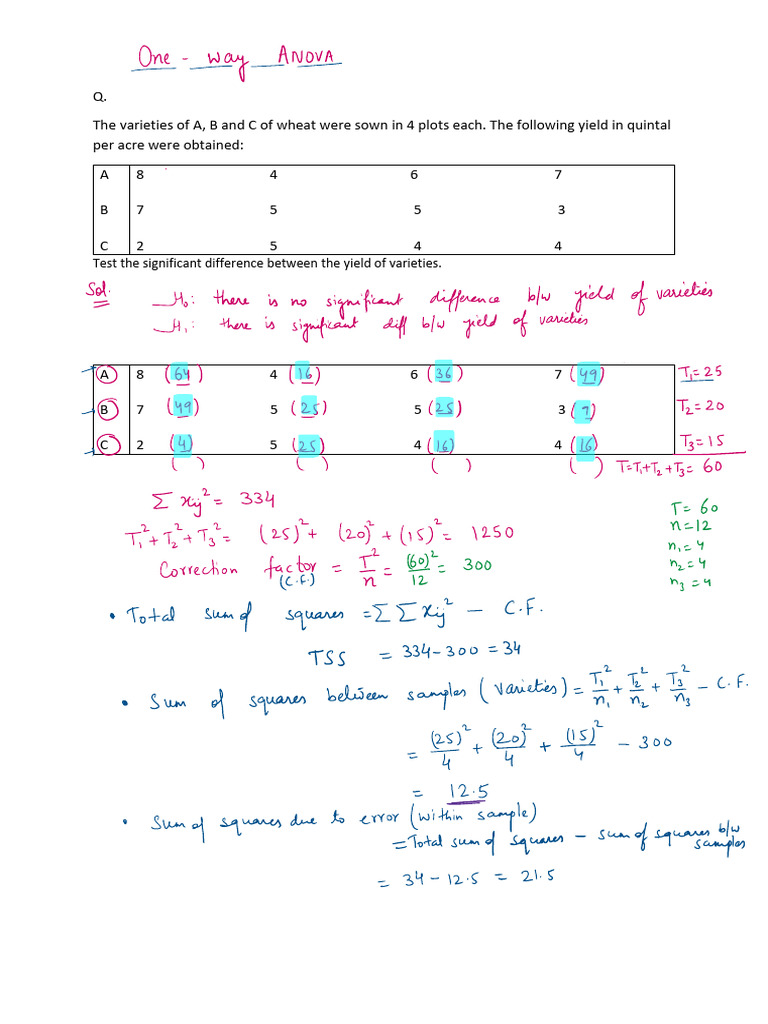 One-way ANOVA
Q.
The varieties of A, B and C of wheat were sown in 4 plots each. The following yield in quintal
per acre were obtained:
A 8 4 6 7
B 7 5 5 3
C 2 5 4 4
Test the significant difference between the yield of varieties.
Sol.
H₀: there is no significant difference b/w yield of varieties
H₁: there is significant diff b/w yield of varieties
A 8 (64) 4 (16) 6 (36) 7 (49) T₁=25
B 7 (49) 5 (25) 5 (25) 3 (9) T₂=20
C 2 (4) 5 (25) 4 (16) 4 (16) T₃=15
( ) ( ) ( ) ( ) T=T₁+T₂+T₃= 60
Σ xij² = 334
T₁²+T₂²+T₃² = (25)²+ (20)²+(15)² = 1250
Correction factor = T²/n = (60)²/12 = 300
(C.F.)
T = 60
n=12
n₁=4
n₂=4
n₃=4
• Total sum of squares = ΣΣxij² – C.F.
TSS = 334-300 = 34
• Sum of squares between samples (varieties) = T₁²/n₁ + T₂²/n₂ + T₃²/n₃ – C.F.
= (25)²/4 + (20)²/4 + (15)²/4 – 300
= 12.5
• Sum of squares due to error (within sample)
= Total sum of squares – sum of squares b/w
samples
= 34-12.5 = 21.5